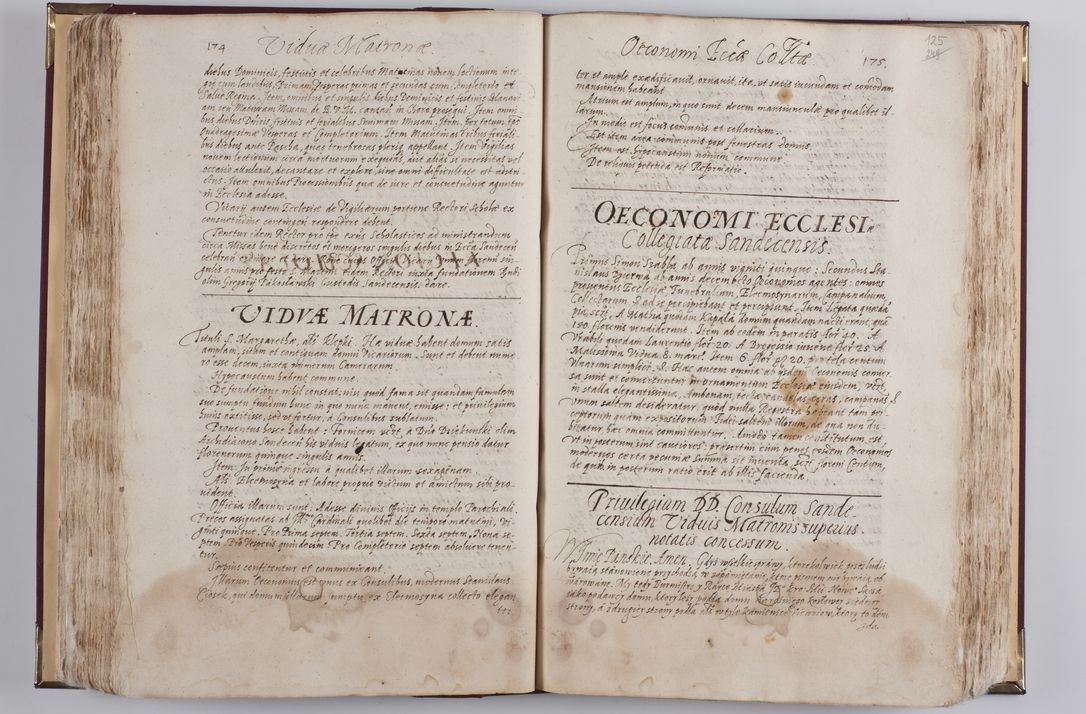 174 Viduæ Matronæ.
diebus Dominicis, festiuis et celebribus Matutinas nouem lectionum inte
gre cum laudibus, Primam, Vesperas primas et secundas cum Completorio et
Salue Regina. Item, omnibus et singulis diebus Dominicis et festiuis
am seu Maturam Missam de B.V.M. cantari in Choro prosequi. Item omni
bus diebus Dnicis, festiuis et ferialibus Summam Missam. Item, per totum
Quadragesimæ Vesperas et Completorium. Item Matutinas tribus feriali-
bus diebus ante Pascha, quas tenebrosas plerique appellant. Item Vigilias
nouem lectionum circa mortuorum exequias, aut alias si necessitas vel
occasio adtulerit, decantare et explere, sine omni difficultate est astri-
ctus. Item omnibus Processionibus quæ de iure et consuetudine aguntur
in Ecclesia adesse.
Vicarij autem Ecclesiæ de Vigiliarum portione Rectori Scholæ ex
consuetudine contingen respondere debent.
Tenetur idem Rector pro
Scholasticos ad ministrandum
circa Missas bene discretos et morigeros singulis diebus in Ecca Sandecen
celebrari
gulis annis pro festo S. Martini eidem Rectori iuxta fundationem
olim Gregorij Pakoslawski Custodis Sandecensis, dare.
VIDVÆ MATRONÆ.
Tituli S. Margarethæ, Hæ viduæ habent domum satis
amplam, sitam et contiguam domui Vicariorum. Sunt et debent nume
ro esse decem, iuxta numerum Camerarum.
Hypocaustum habent commune.
De fundatione nihil constat; nisi quod fama sit quandam famulam
suo sumptu fundum hunc in quo nunc manent, emisse: et priuilegium
huius extitisse, sed vt fertur, à Consulibus sublatum.
Prouentus hosce habent: Fornicem scilt. à Dno olim
Archidiacono Sandecen his viduis legatum, ex quo nunc pensio datur
florenorum quinque singulis annis.
Item. In primo ingressu à qualibet illarum sexagenam.
Als. Elemosyna et labore proprio victum et amictum sibi pro-
uident.
Officia illarum sunt. Adesse diuinis officijs in templo Parochiali.
Preces assignatas ab Illmo Cardinali quolibet die tempore matutini, vi-
ginti quinque. Pro Prima septem. Tertia septem. Sexta septem. Nona se-
ptem. Pro Vesperis quindecim. Pro Completorio septem absoluere tenen-
tur.
Sæpius confitentur et communicant.
Illarum Oeconomus est vnus ex Consulibus, modernus Stanislaus
Ciosek, qui domum illarum sumptu ex Elemosyna collecto elegan
ter
Oeconomi Eccæ Colltæ 175.
125
ter et amplè exædificauit, ornauit, ita, vt satis iucundam et comodam
mansionem habeant.
Atrium est amplum, in quo sunt decem mansiunculæ pro qualibet il-
larum.
In medio est focus communis et cellarium.
Est item area communis post fenestras domus.
Item est hypocaustum nouum commune.
De reliquis petenda est Reformatio.
OECONOMI ECCLESIæ
Collegiatæ Sandecensis.
Primus Simon Szabla ab annis viginti quinque: Secundus Sta-
nislaus ab annis decem octo Oeconomos agentes: omnes
prouentus Ecclesiæ, Funebralium, Elemosynarum, Campanalium,
Collectarum percipiebant et percipiunt. Item Legata quædam
pia, scilt. A Matrea quodam Kapala domum quandam nacti erant quam
150 florenis vendiderunt. Item ab eodem in paratis flor 40. A
Wrobis quodam Laurentio flor 20. A Bregessio iuuene flor 25. A
Malissima Vidua, 8. marc. Item 6. flor
simplex. Hæc autem omnia ab ijsdem Oeconomis conuer-
sa sunt et conuertuntur in ornamentum Ecclesiæ eiusdem, vtpt.
in stalla elegantissima, Ambonam, tecta, candelas, ceras, campanas &
Vnum saltem desideratur, quod nulla Registra habeant tam per-
ceptorum quam expositorum. Fidei saltem illorum, de qua non du-
bitatur, hæc omnia committuntur. Amodo tamen constitutum est,
vt in posterum sint cautiores: præsertim cum penes eosdem Oeconomos
modernos certa pecuniæ summa sit inuenta, scilt. floren Centum,
de qua in posterum ratio erit ab illis facienda.
Priuilegium DD. Consulum Sande
censium Viduis Matronis superius
notatis concessum.
W Imię Panskie. Amen. Gdys wszelkie sprawy, ktorekolwiek przes ludzi
bywaią stanowione przychodzą w zapamiętanie, ktore pismem nie bywaią ob-
warowane. My tedy Burmistrz y Rayce Miasta JKr. Mci Nowe° Sącza
iako podawcy domu, ktory leży podla domu Kozłowey z iedney
strony, á z drugiey strony podla ... kamienice Vicariow, ktory to dom
zda-